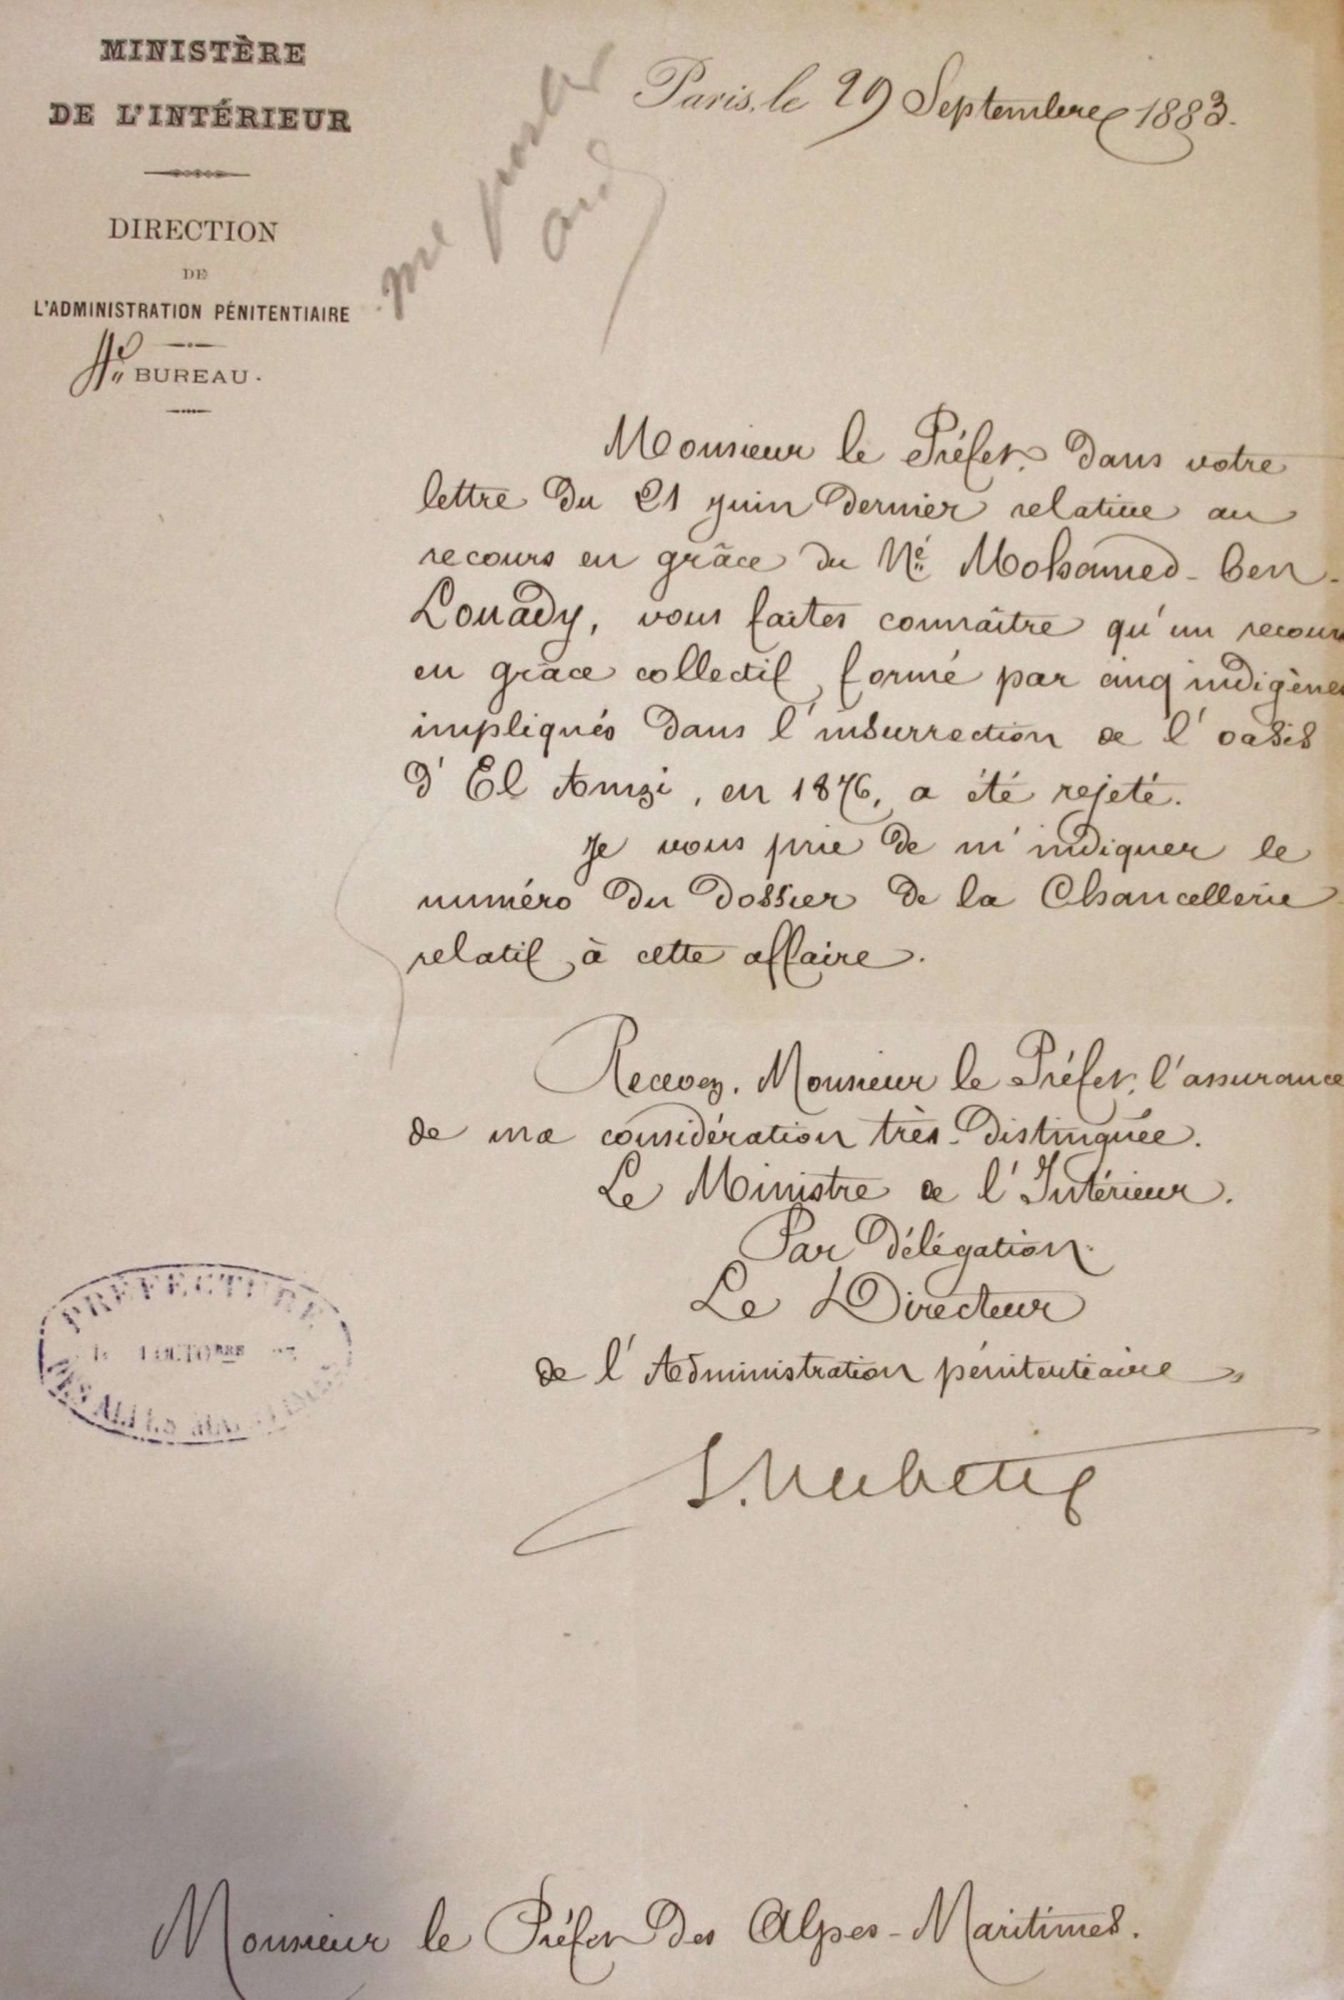 MINISTÈRE
DE L'INTÉRIEUR
DIRECTION
DE
L'ADMINISTRATION PÉNITENTIAIRE
BUREAU.
me parler
Paris, le 29 Septembre 1883.
Monsieur le Préfet, dans votre
lettre du 21 juin dernier relative au
recours en grâce du Né Mohamed-ben-
Louady, vous faites connaître qu'un recours
en grâce collectif, formé par cinq indigènes
impliqués dans l'insurrection de l'oasis
d'El Amzi, en 1876, a été rejeté.
Je vous prie de m'indiquer le
numéro du dossier de la Chancellerie
relatif à cette affaire.
Recevez, Monsieur le Préfet, l'assurance
de ma considération très-distinguée.
Le Ministre de l'Intérieur.
Par délégation.
Le Directeur
de l'Administration pénitentiaire
PRÉFECTURE
OCTOBRE
DES ALPES MARITIMES
Monsieur le Préfet des Alpes-Maritimes.